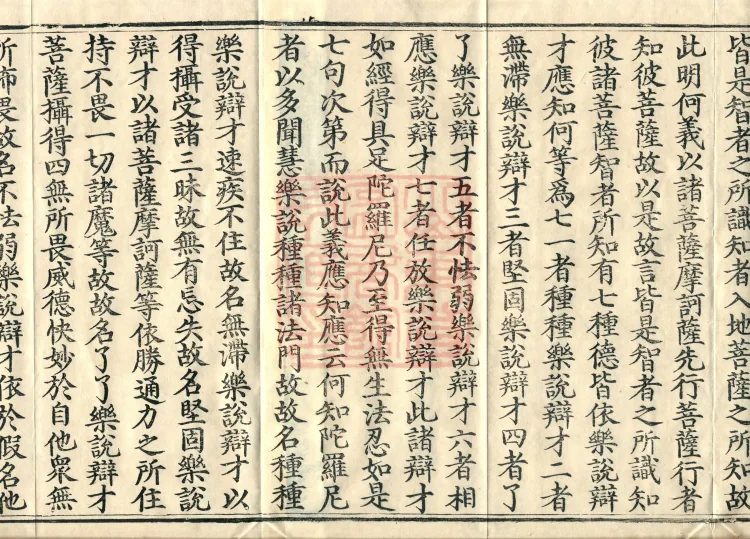 皆是智者之所識知者入地菩薩之所知故
此明何義以諸菩薩摩訶薩先行菩薩行者
知彼菩薩故以是故言皆是智者之所識知
彼諸菩薩智者所知有七種德皆依樂說辯
才應知何等為七一者種種樂說辯才二者
無滯樂說辯才三者堅固樂說辯才四者了
了樂說辯才五者不怯弱樂說辯才六者相
應樂說辯才七者任放樂說辯才此諸辯才
如經得具足陀羅尼乃至得無生法忍如是
七句次第而說此義應知應云何知陀羅尼
者以多聞慧樂說種種諸法門故故名種種
樂說辯才速疾不住故名無滯樂說辯才以
得攝受諸三昧故無有忘失故名堅固樂說
辯才以諸菩薩摩訶薩等依勝通力之所住
持不畏一切諸魔等故故名了了樂說辯才
菩薩攝得四無所畏威德快妙於自他眾無
所怖畏故名不怯弱樂說辯才依於假名他